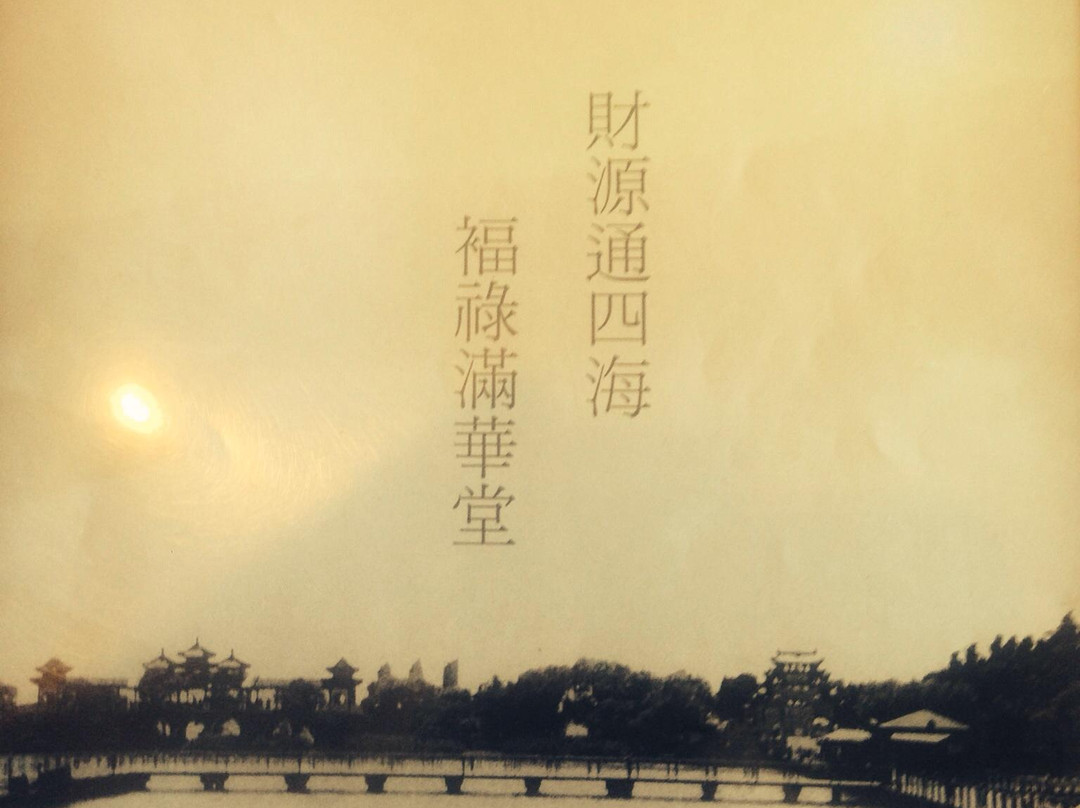 財源通四海
褔祿滿華堂